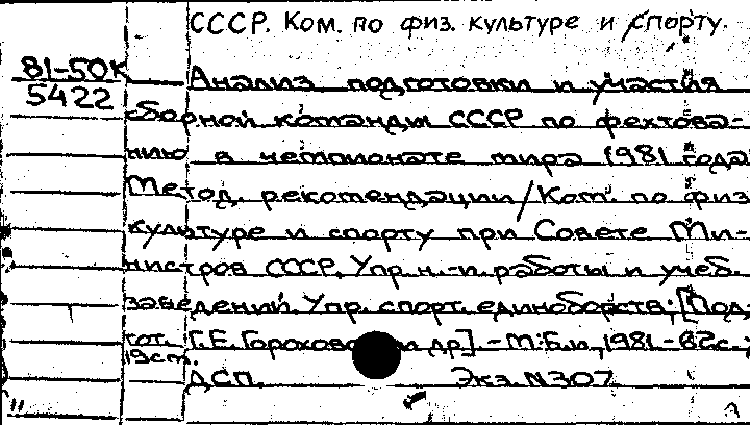 СССР. Ком. по физ. культуре и спорту.
81-50К
5422
Анализ подготовки и участия
сборной команды СССР по фехтова-
нию в чемпионате мира 1981 года
Метод. рекомендации/Ком. по физ
культуре и спорту при Совете Ми-
нистров СССР, Упр. н.-и. работы и учеб.
заведений, Упр. спорт. единоборств; [Под-
гот. Г.Е. Горохова и др]. - М: Б.и, 1981 - 62с.;
19см.
ДСП. Экз. N307